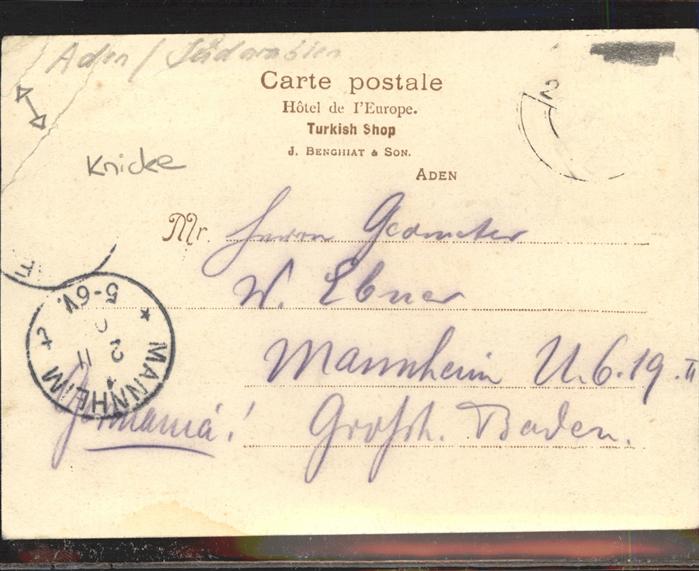 Aden / Südarabien
Carte postale
Hôtel de l'Europe.
Turkish Shop
J. BENGHIAT & SON.
ADEN
Knicke
2
Mr. Herrn Geometer
W. Ebner
Mannheim U.6.19. II
Germania! Großh. Baden.
MANNHEIM
5-6V.
2 11